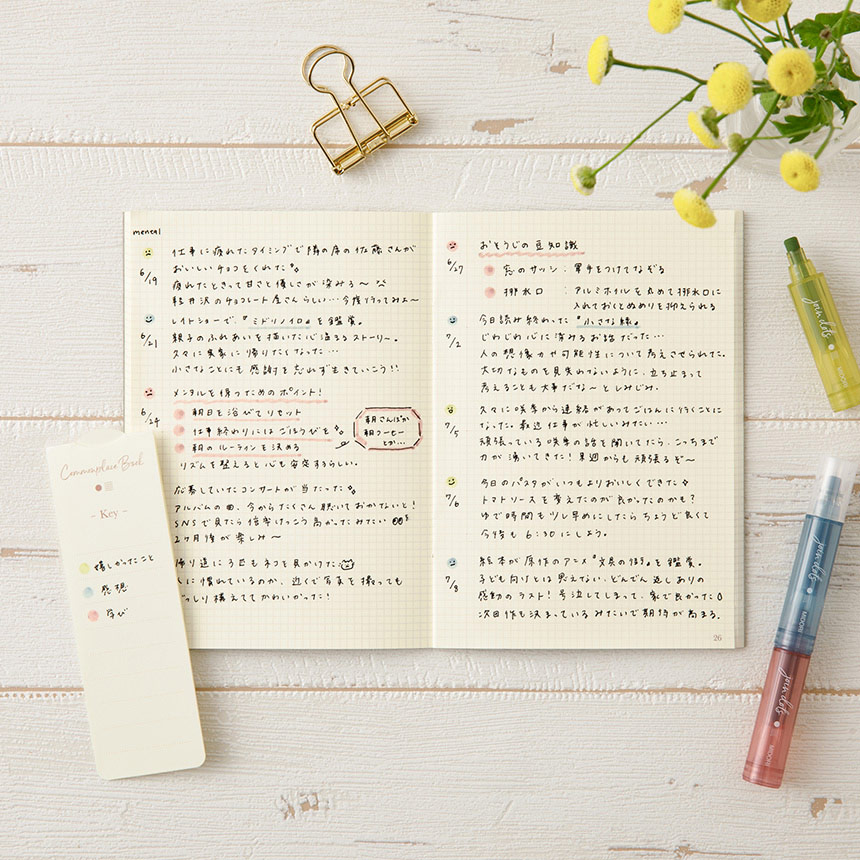 mental
仕事に疲れたタイミングで隣の席の佐藤さんが
6/19
おいしいチョコをくれた
疲れたときって甘さと優しさが染みる〜
軽井沢のチョコレート屋さんらしい…今度行ってみよ〜
レイトショーで、『ミドリノイロ』を鑑賞。
6/21
親子のふれあいを描いた心温まるストーリー。
久々に実家に帰りたくなった…
小さなことにも感謝を忘れず生きていこう!!
メンタルを保つためのポイント!
6/24
朝日を浴びてリセット
仕事終わりにはごほうびを
朝のルーティンを決める
朝さんぽか
朝コーヒー
とか…
リズムを整えると心も安定するらしい。
応募していたコンサートが当たった
アルバムの曲、今からたくさん聴いておかないと!
SNSで見たら倍率けっこう高かったみたい
2ヶ月待が楽しみ〜
帰り道に3匹もネコを見かけた
人に慣れているのか、近くで写真を撮っても
どっしり構えててかわいかった!
Commonplace Book
- Key -
嬉しかったこと
感想
学び
おそうじの豆知識
6/27
窓のサッシ:軍手をつけてなぞる
排水口:アルミホイルを丸めて排水口に
入れておくとぬめりを抑えられる
今日読み終わった『小さな縁』
7/2
じわじわ心に染みるお話だった…
人の想像力や可能性について考えさせられた。
大切なものを見失わないように、立ち止まって
考えることも大事だな〜としみじみ。
久々に咲季から連絡があってごはんに行くことに
7/5
なった。最近仕事が忙しいみたい…
頑張っている咲季の話を聞いてたら、こっちまで
力が湧いてきた!来週からも頑張るぞ〜
今日のパスタがいつもよりおいしくできた
7/6
トマトソースを変えたのが良かったのかも?
ゆで時間も少し早めにしたらちょうど良くて
今後も6:30にしよう。
絵本が原作のアニメ『文具のほう』を鑑賞。
7/8
子ども向けとは思えない、どんでん返しありの
感動のラスト!号泣してしまって、家で良かった
次回作も決まっているみたいで期待が高まる。
26
join dots
join dots
MIDORI
join dots
MIDORI